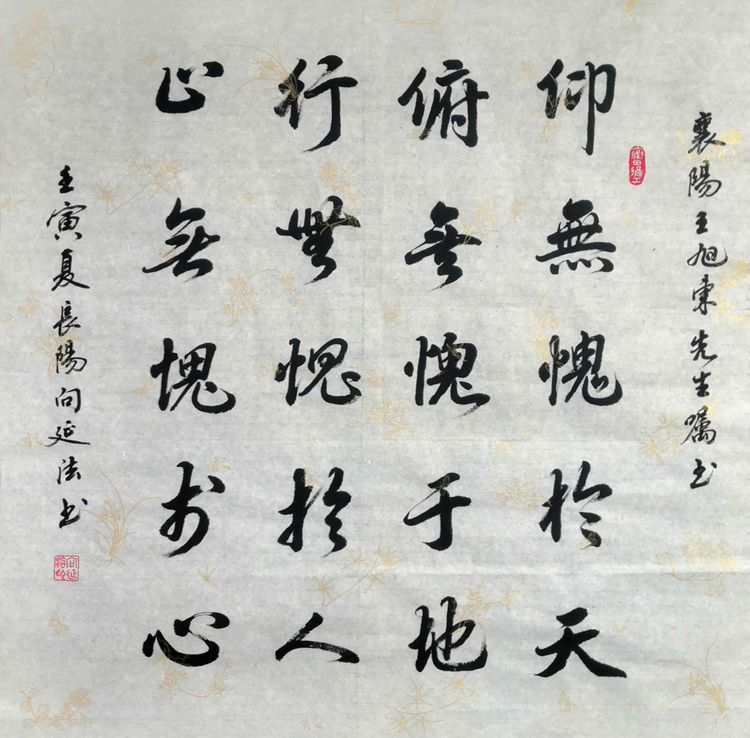 襄陽王旭東先生嘱书
仰無愧於天
俯無愧于地
行無愧於人
止無愧於心
壬寅夏長陽向延法书